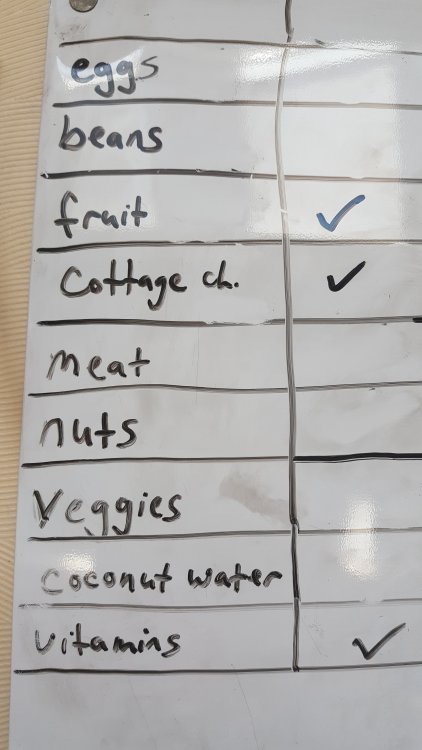 eggs
beans
fruit ✓
Cottage ch. ✓
meat
nuts
Veggies
coconut water
vitamins ✓